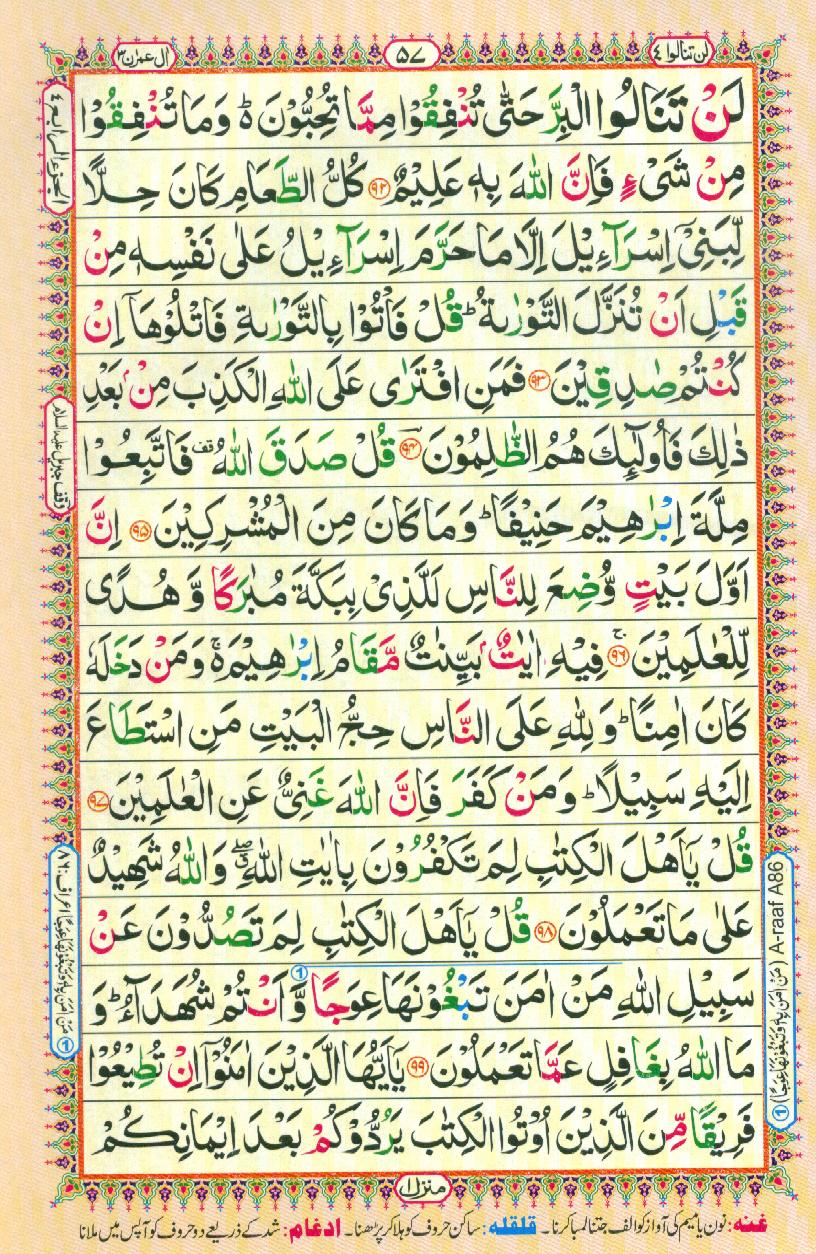 لن تنالوا ٤
٥٧
اٰل عمرٰن ٣
لَنْ تَنَالُوا الْبِرَّ حَتّٰى تُنْفِقُوْا مِمَّا تُحِبُّوْنَ ؕ۬ وَمَا تُنْفِقُوْا
مِنْ شَىْءٍ فَاِنَّ اللّٰهَ بِهٖ عَلِيْمٌ ﴿۹۲﴾ كُلُّ الطَّعَامِ كَانَ حِلًّا
لِّبَنِىْۤ اِسْرَآءِيْلَ اِلَّا مَا حَرَّمَ اِسْرَآءِيْلُ عَلٰى نَفْسِهٖ مِنْ
قَبْلِ اَنْ تُنَزَّلَ التَّوْرٰىةُ ؕ قُلْ فَاْتُوْا بِالتَّوْرٰىةِ فَاتْلُوْهَاۤ اِنْ
كُنْتُمْ صٰدِقِيْنَ ﴿۹۳﴾ فَمَنِ افْتَرٰى عَلَى اللّٰهِ الْكَذِبَ مِنْۢ بَعْدِ
ذٰلِكَ فَاُولٰٓئِكَ هُمُ الظّٰلِمُوْنَ ﴿۹۴﴾ قُلْ صَدَقَ اللّٰهُ قف فَاتَّبِعُوْا
مِلَّةَ اِبْرٰهِيْمَ حَنِيْفًا ؕ وَمَا كَانَ مِنَ الْمُشْرِكِيْنَ ﴿۹۵﴾ اِنَّ
اَوَّلَ بَيْتٍ وُّضِعَ لِلنَّاسِ لَلَّذِىْ بِبَكَّةَ مُبٰرَكًا وَّهُدًى
لِّلْعٰلَمِيْنَ ۚ﴿۹۶﴾ فِيْهِ اٰيٰتٌۢ بَيِّنٰتٌ مَّقَامُ اِبْرٰهِيْمَ ۬ۚ وَمَنْ دَخَلَهٗ
كَانَ اٰمِنًا ؕ وَلِلّٰهِ عَلَى النَّاسِ حِجُّ الْبَيْتِ مَنِ اسْتَطَاعَ
اِلَيْهِ سَبِيْلًا ؕ وَمَنْ كَفَرَ فَاِنَّ اللّٰهَ غَنِىٌّ عَنِ الْعٰلَمِيْنَ ﴿۹۷﴾
قُلْ يٰۤاَهْلَ الْكِتٰبِ لِمَ تَكْفُرُوْنَ بِاٰيٰتِ اللّٰهِ ۖۗ وَاللّٰهُ شَهِيْدٌ
عَلٰى مَا تَعْمَلُوْنَ ﴿۹۸﴾ قُلْ يٰۤاَهْلَ الْكِتٰبِ لِمَ تَصُدُّوْنَ عَنْ
سَبِيْلِ اللّٰهِ مَنْ اٰمَنَ تَبْغُوْنَهَا عِوَجًا وَّاَنْتُمْ شُهَدَآءُ ؕ وَ
مَا اللّٰهُ بِغَافِلٍ عَمَّا تَعْمَلُوْنَ ﴿۹۹﴾ يٰۤاَيُّهَا الَّذِيْنَ اٰمَنُوْۤا اِنْ تُطِيْعُوْا
فَرِيْقًا مِّنَ الَّذِيْنَ اُوْتُوا الْكِتٰبَ يَرُدُّوْكُمْ بَعْدَ اِيْمَانِكُمْ
الجزء الرابع ٤
وقف جبريل عليه السلام
① مَنْ اٰمَنَ بِهٖ وَتَبْغُوْنَهَا عِوَجًا اعراف:٨٦
① (مَنْ اٰمَنَ بِهٖ وَتَبْغُوْنَهَا عِوَجًا) A-raaf A86
منزل ١
غنه: نون یا میم کی آواز کو الف جتنا لمبا کرنا۔ قلقله: ساکن حروف کو ہلا کر پڑھنا۔ ادغام: شد کے ذریعے دو حروف کو آپس میں ملانا